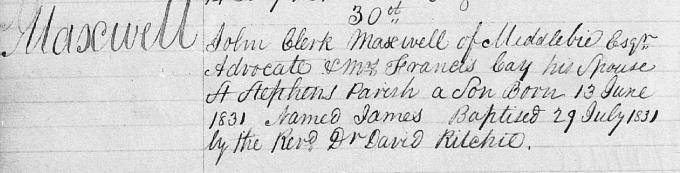 30th
Maxwell
John Clerk Maxwell of Middlebie Esqr
Advocate & Mrs Francis Cay his Spouse
St Stephens Parish a Son Born 13 June
1831 Named James Baptised 29 July 1831
by the Revd Dr David Ritchie.